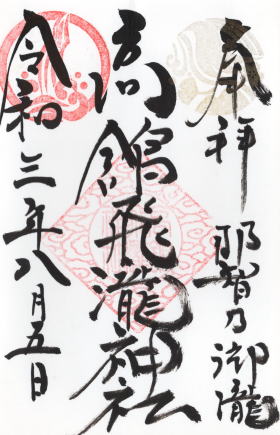 奉拝 那智乃御瀧
高舘飛瀧神社
令和三年八月五日